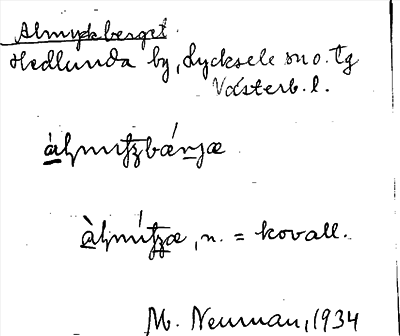 Almyckberget.
Hedlunda by, Lycksele sn o. tg
Västerb. l.
n. = kovall.
M. Neuman, 1934